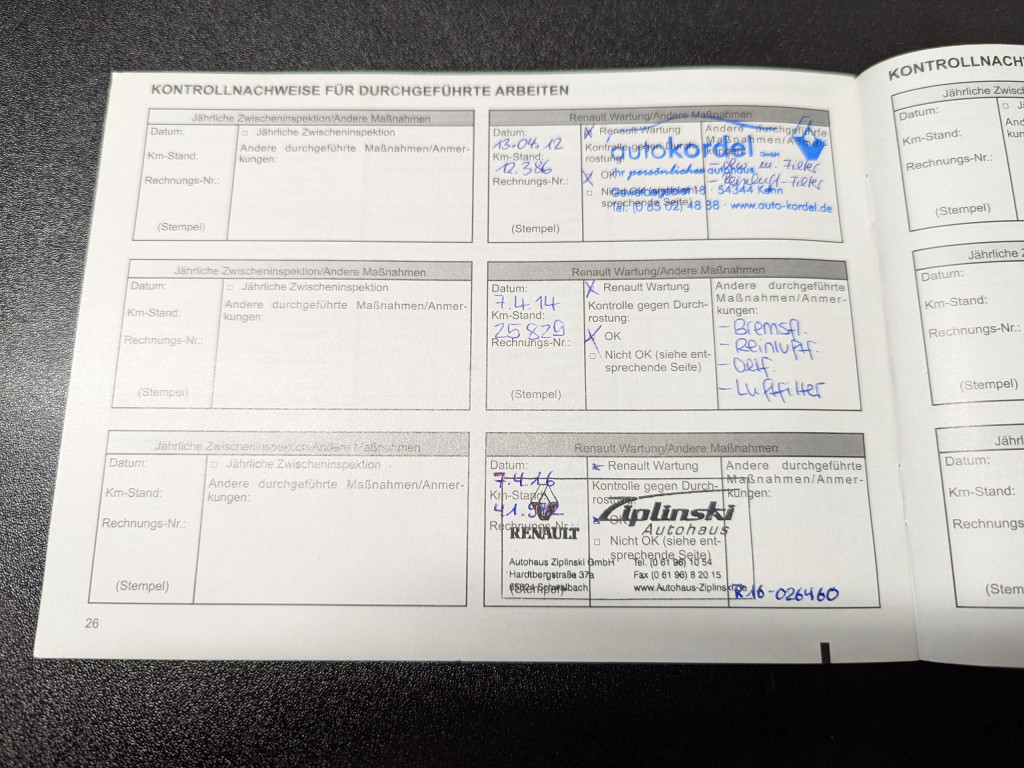 KONTROLLNACHWEISE FÜR DURCHGEFÜHRTE ARBEITEN
Jährliche Zwischeninspektion/Andere Maßnahmen
Datum:
□ Jährliche Zwischeninspektion
Km-Stand:
Andere durchgeführte Maßnahmen/Anmer-
kungen:
Rechnungs-Nr.:
(Stempel)
Renault Wartung/Andere Maßnahmen
Datum:
13.04.12
Km-Stand:
12.386
Rechnungs-Nr.:
(Stempel)
Renault Wartung
Kontrolle gegen Durch-
rostung:
OK
Nicht OK (siehe ent-
sprechende Seite)
Andere durchgeführte
Maßnahmen/Anmer-
kungen:
autokordel GmbH
Ihr persönliches autohaus
Gewerbegebiet 18 · 54344 Kenn
Tel. (0 65 02) 48 88 · www.auto-kordel.de
m. Filter
- Reinluft-Filter
Jährliche Zwischeninspektion/Andere Maßnahmen
□ Jährliche Zwischeninspektion
Km-Stand:
Andere durchgeführte Maßnahmen/Anmer-
kungen:
Rechnungs-Nr.:
(Stempel)
Renault Wartung/Andere Maßnahmen
Datum:
7.4.14
Km-Stand:
25829
Rechnungs-Nr.:
(Stempel)
Renault Wartung
Kontrolle gegen Durch-
rostung:
OK
□ Nicht OK (siehe ent-
sprechende Seite)
Andere durchgeführte
Maßnahmen/Anmer-
kungen:
- Bremsfl.
- Reinluftf.
- Oelf.
- Luftfilter
Jährliche Zwischeninspektion/Andere Maßnahmen
Datum:
□ Jährliche Zwischeninspektion
Km-Stand:
Andere durchgeführte Maßnahmen/Anmer-
kungen:
Rechnungs-Nr.:
(Stempel)
Renault Wartung/Andere Maßnahmen
Datum:
7.4.16
Km-Stand:
Rechnungs-Nr.:
(Stempel)
Renault Wartung
Kontrolle gegen Durch-
rostung:
OK
□ Nicht OK (siehe ent-
sprechende Seite)
Andere durchgeführte
Maßnahmen/Anmer-
kungen:
RENAULT
Ziplinski
Autohaus
Autohaus Ziplinski GmbH
Hardtbergstraße 37a
65824 Schwalbach
Tel. (0 61 96) 10 54
Fax (0 61 96) 8 20 15
www.Autohaus-Ziplinski.de
R16-026460
26
KONTROLLNACH
Jährliche Zwisc
Datum:
Km-Stand:
Rechnungs-Nr.:
(Stempel)
Datum:
Km-Stand:
Rechnungs-Nr.:
(Stempel)
Datum:
Km-Stand:
Rechnungs-
(Stem